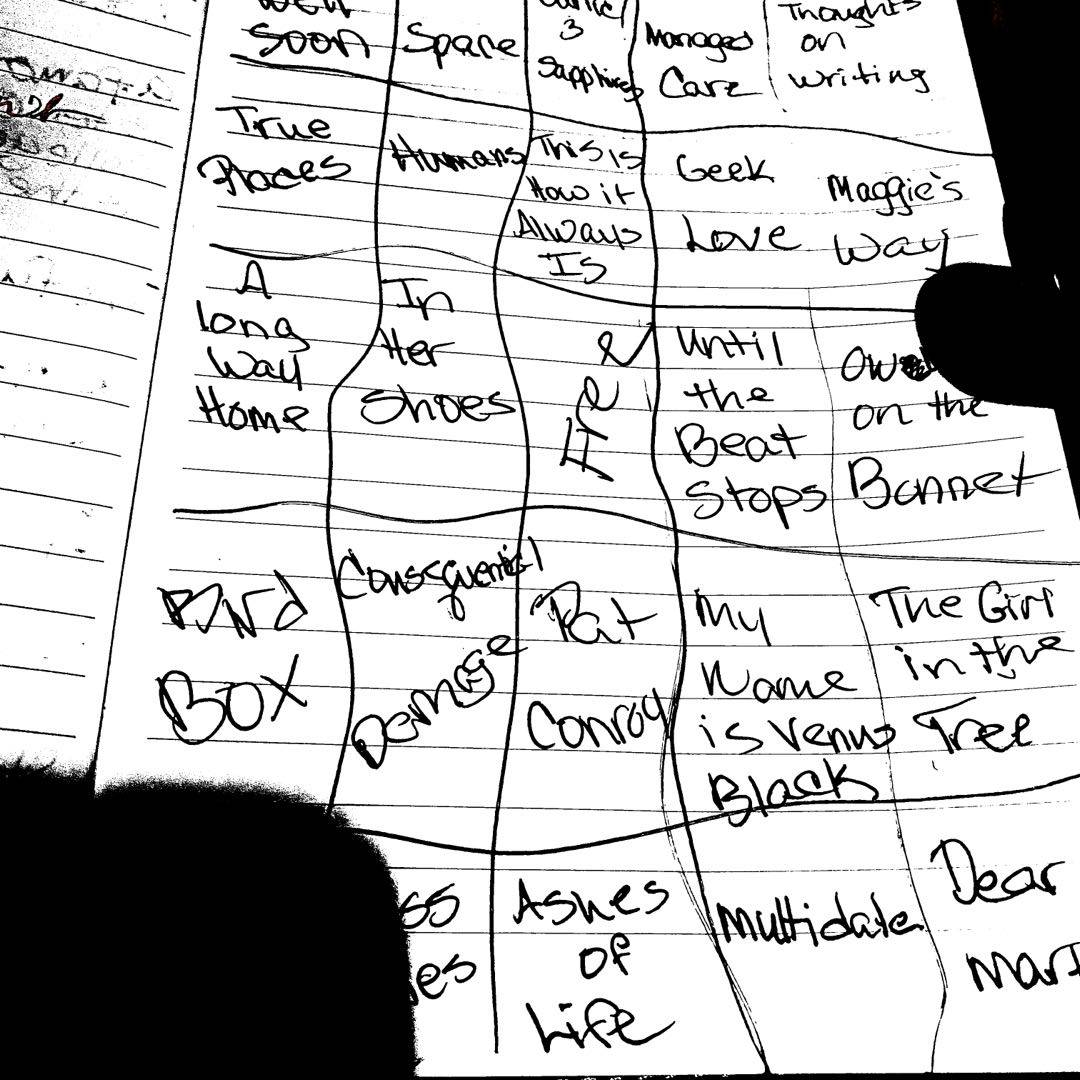 Well
Soon
Spare
3
Sapphires
Managed
Care
Thoughts
on
writing
True
Places
Humans
This is
How it
Always
Is
Geek
Love
Maggie's
Way
A
long
Way
Home
In
Her
Shoes
Free
Until
the
Beat
Stops
on the
Bonnet
Bird
Box
Consequential
Damage
Pat
Conroy
My
Name
is Venus
Black
The Girl
in the
Tree
ss
es
Ashes
of
Life
Multidate
Dear